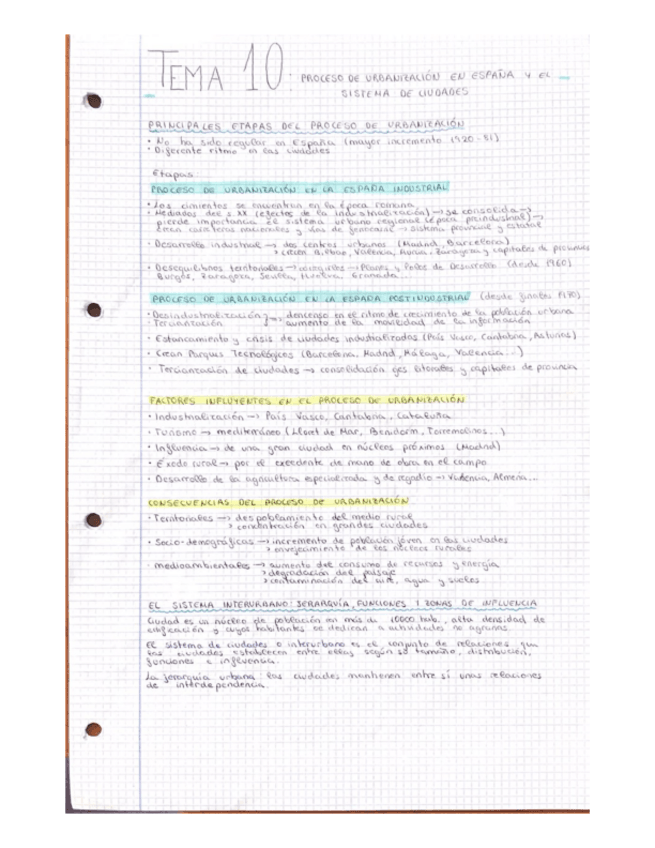 TEMA 10: PROCESO DE URBANIZACIÓN EN ESPAÑA Y EL
SISTEMA DE CIUDADES
PRINCIPALES ETAPAS DEL PROCESO DE URBANIZACIÓN
· No ha sido regular en España (mayor incremento 1920-81)
· Diferente ritmo en las ciudades
Etapas:
PROCESO DE URBANIZACIÓN EN LA ESPAÑA INDUSTRIAL
· Los cimientos se encuentran en la época romana
· Mediados del s.XX (efectos de la industrialización) → se consolida →
pierde importancia el sistema urbano regional (época preindustrial) →
crean carreteras nacionales y vías de ferrocarril → sistema provincial y estatal
· Desarrollo industrial → dos centros urbanos (Madrid, Barcelona)
> crecen Bilbao, Valencia, Zaragoza y capitales de provincias
· Desequilibrios territoriales → corregirlos → Planes y Polos de Desarrollo (desde 1960)
Burgos, Zaragoza, Sevilla, Huelva, Granada...
PROCESO DE URBANIZACIÓN EN LA ESPAÑA POSTINDUSTRIAL (desde finales 1970)
· Desindustrialización } → descenso en el ritmo de crecimiento de la población urbana
· Terciarización } → aumento de la movilidad de la información
· Estancamiento y crisis de ciudades industrializadas (País Vasco, Cantabria, Asturias)
· Crean Parques Tecnológicos (Barcelona, Madrid, Málaga, Valencia...)
· Terciarización de ciudades → consolidación ejes litorales y capitales de provincia
FACTORES INFLUYENTES EN EL PROCESO DE URBANIZACIÓN
· Industrialización → País Vasco, Cantabria, Cataluña
· Turismo → mediterráneo (Lloret de Mar, Benidorm, Torremolinos...)
· Influencia → de una gran ciudad en núcleos próximos (Madrid)
· Éxodo rural → por el excedente de mano de obra en el campo
· Desarrollo de la agricultura especializada y de regadío → Valencia, Almería...
CONSECUENCIAS DEL PROCESO DE URBANIZACIÓN
· Territoriales → despoblamiento del medio rural
> concentración en grandes ciudades
· Socio-demográficas → incremento de población joven en las ciudades
> envejecimiento de los núcleos rurales
· medioambientales → aumento del consumo de recursos y energía
> degradación del paisaje
> contaminación del aire, agua y suelos
EL SISTEMA INTERURBANO: JERARQUÍA, FUNCIONES Y ZONAS DE INFLUENCIA
Ciudad es un núcleo de población en más de 10000 hab., alta densidad de
edificación y cuyos habitantes se dedican a actividades no agrarias.
El sistema de ciudades o interurbano es el conjunto de relaciones que
las ciudades establecen entre ellas según su tamaño, distribución,
funciones e influencia.
La jerarquía urbana: las ciudades mantienen entre sí unas relaciones
de interdependencia.